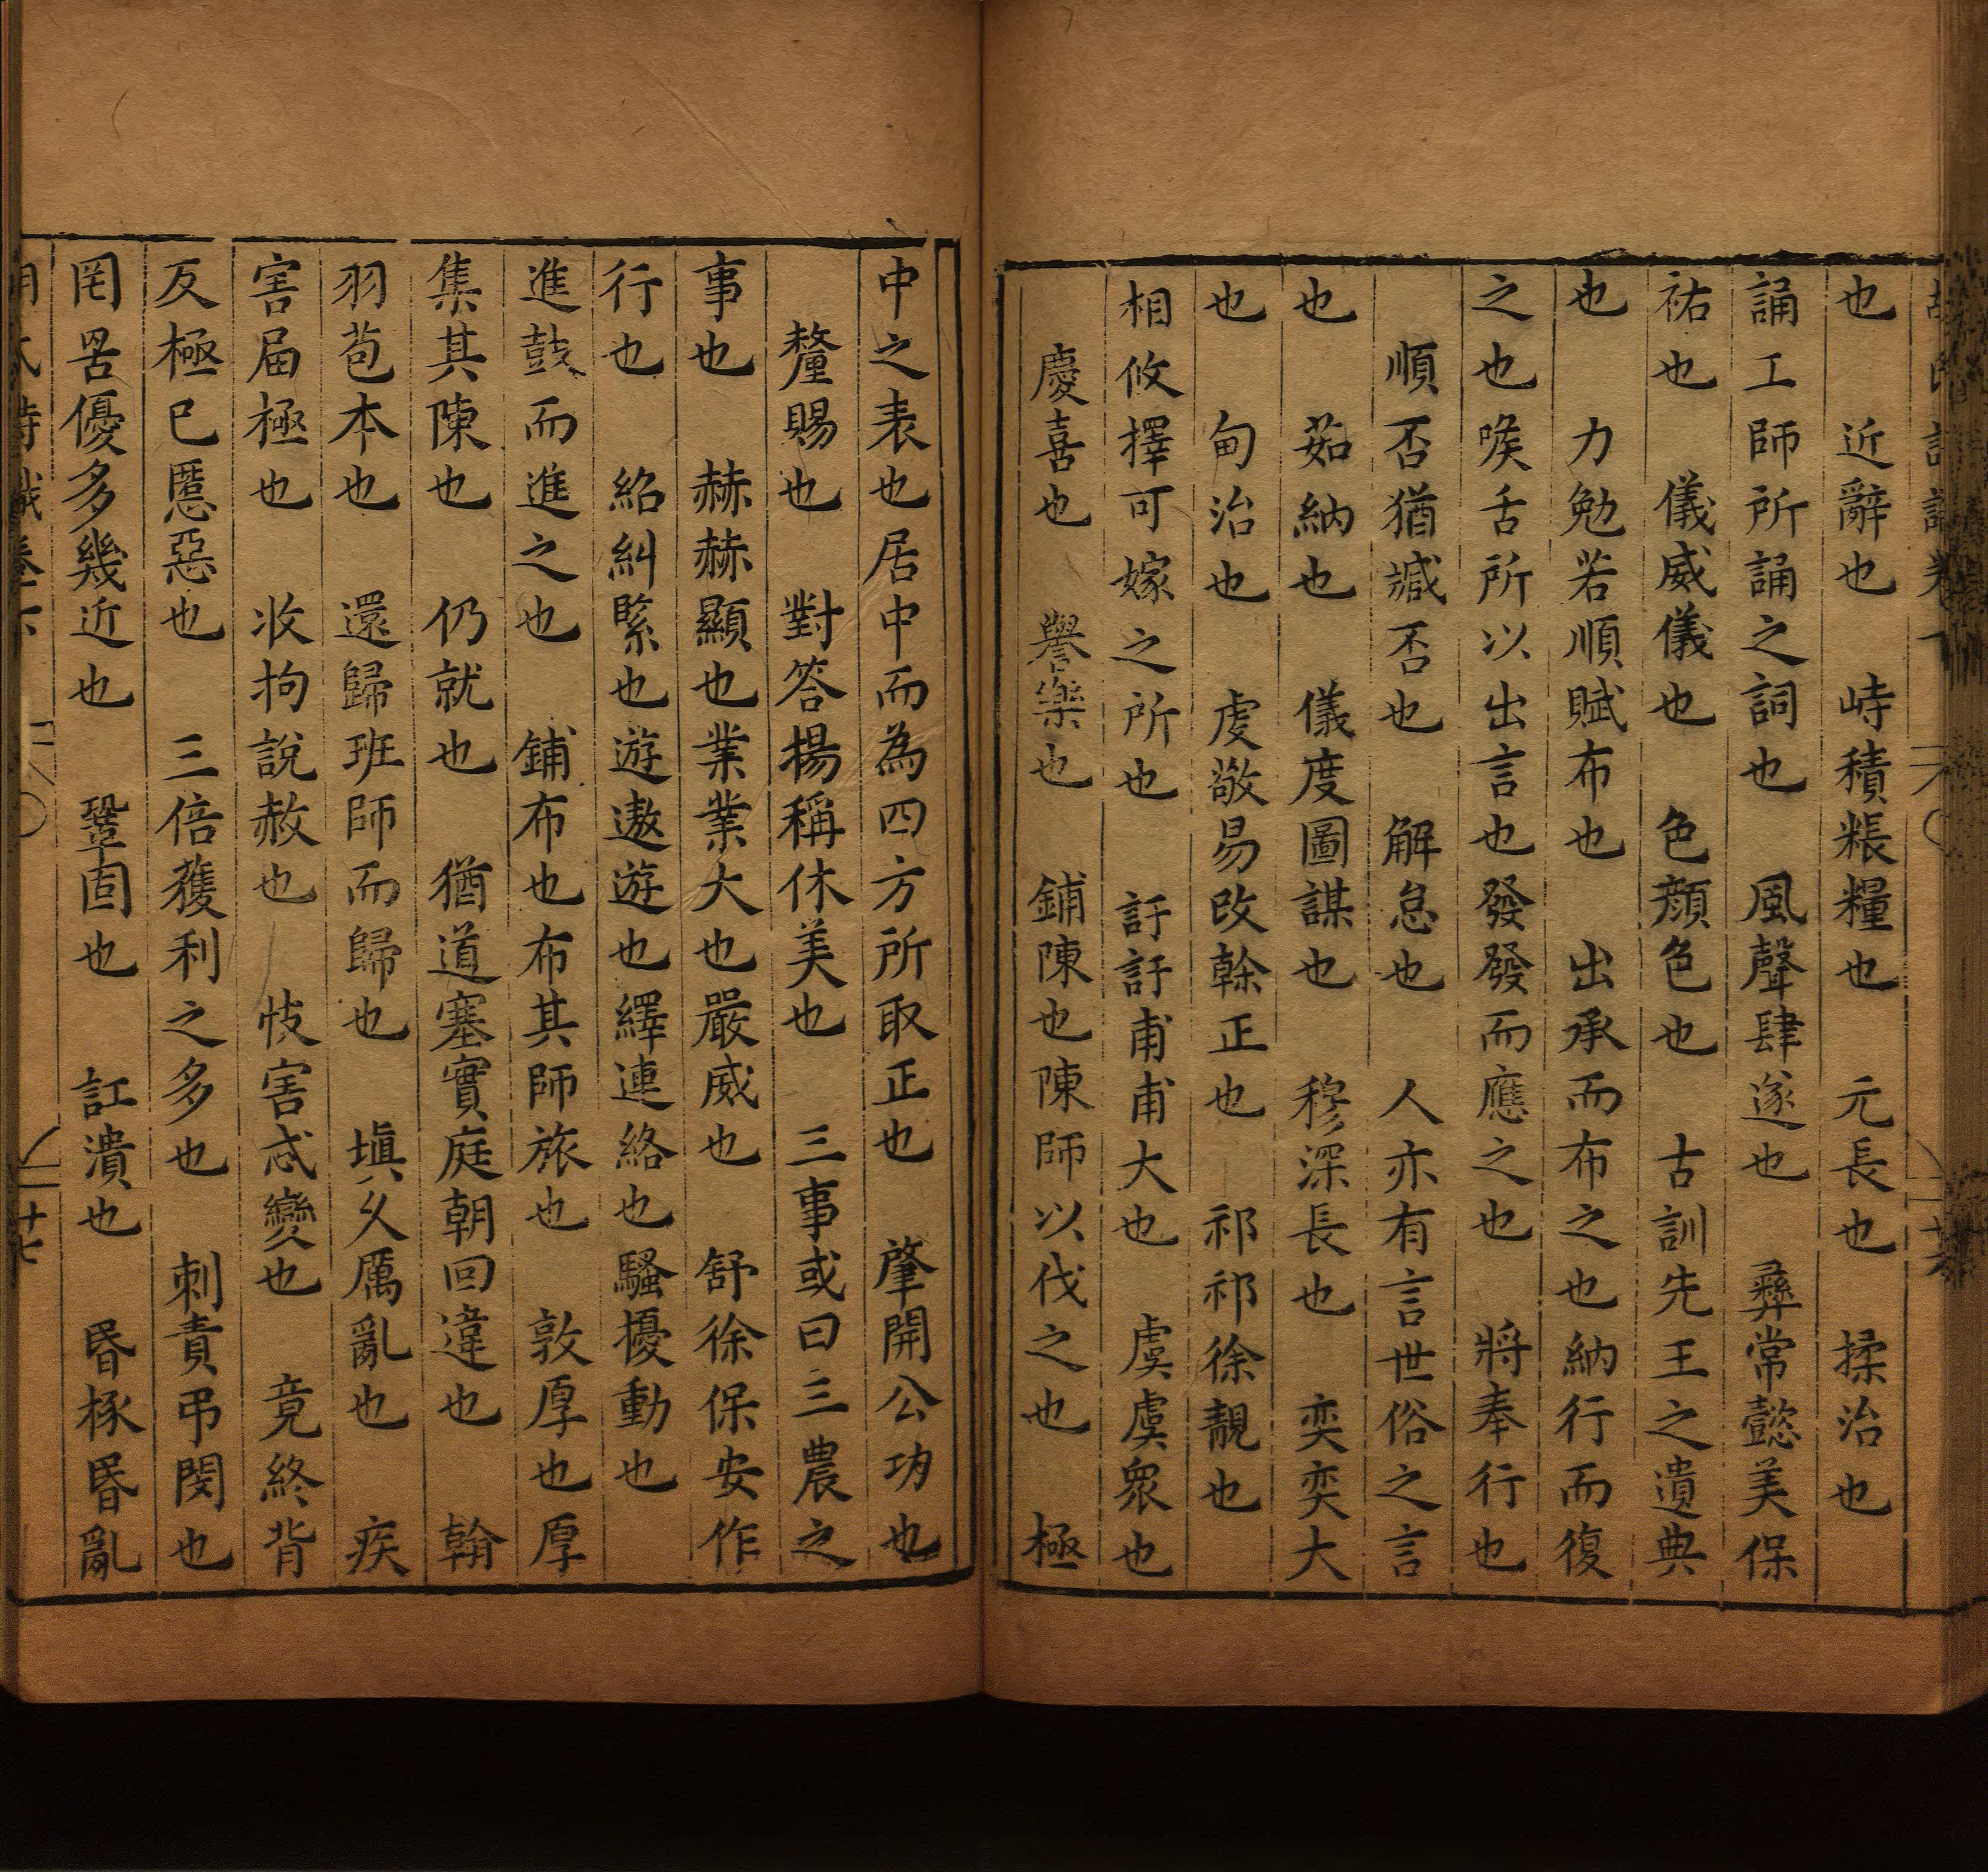 也　近辭也　峙積粻糧也　元長也　揉治也
誦工師所誦之詞也　風聲肆遂也　彛常懿美保
祐也　儀威儀也　色顔色也　古訓先王之遺典
也　力勉若順賦布也　出承而布之也納行而復
之也喉舌所以出言也發發而應之也　將奉行也
順否猶臧否也　解怠也　人亦有言世俗之言
也　茹納也　儀度圖謀也　穆深長也　奕奕大
也　甸治也　虔敬易改榦正也　祁祁徐靚也
相攸擇可嫁之所也　訏訏甫甫大也　麌麌衆也
慶喜也　譽樂也　鋪陳也陳師以伐之也　極
中之表也居中而為四方所取正也　肇開公功也
釐賜也　對答揚稱休美也　三事或曰三農之
事也　赫赫顯也業業大也嚴威也　舒徐保安作
行也　紹糾緊也遊遨遊也繹連絡也騷擾動也
進鼓而進之也　鋪布也布其師旅也　敦厚也厚
集其陳也　仍就也　猶道塞實庭朝回違也　翰
羽苞本也　還歸班師而歸也　塡久厲亂也　疾
害屆極也　收拘說赦也　忮害忒變也　竟終背
反極已慝惡也　三倍獲利之多也　刺責弔閔也
罔罟優多幾近也　鞏固也　訌潰也　昬椓昬亂
十七